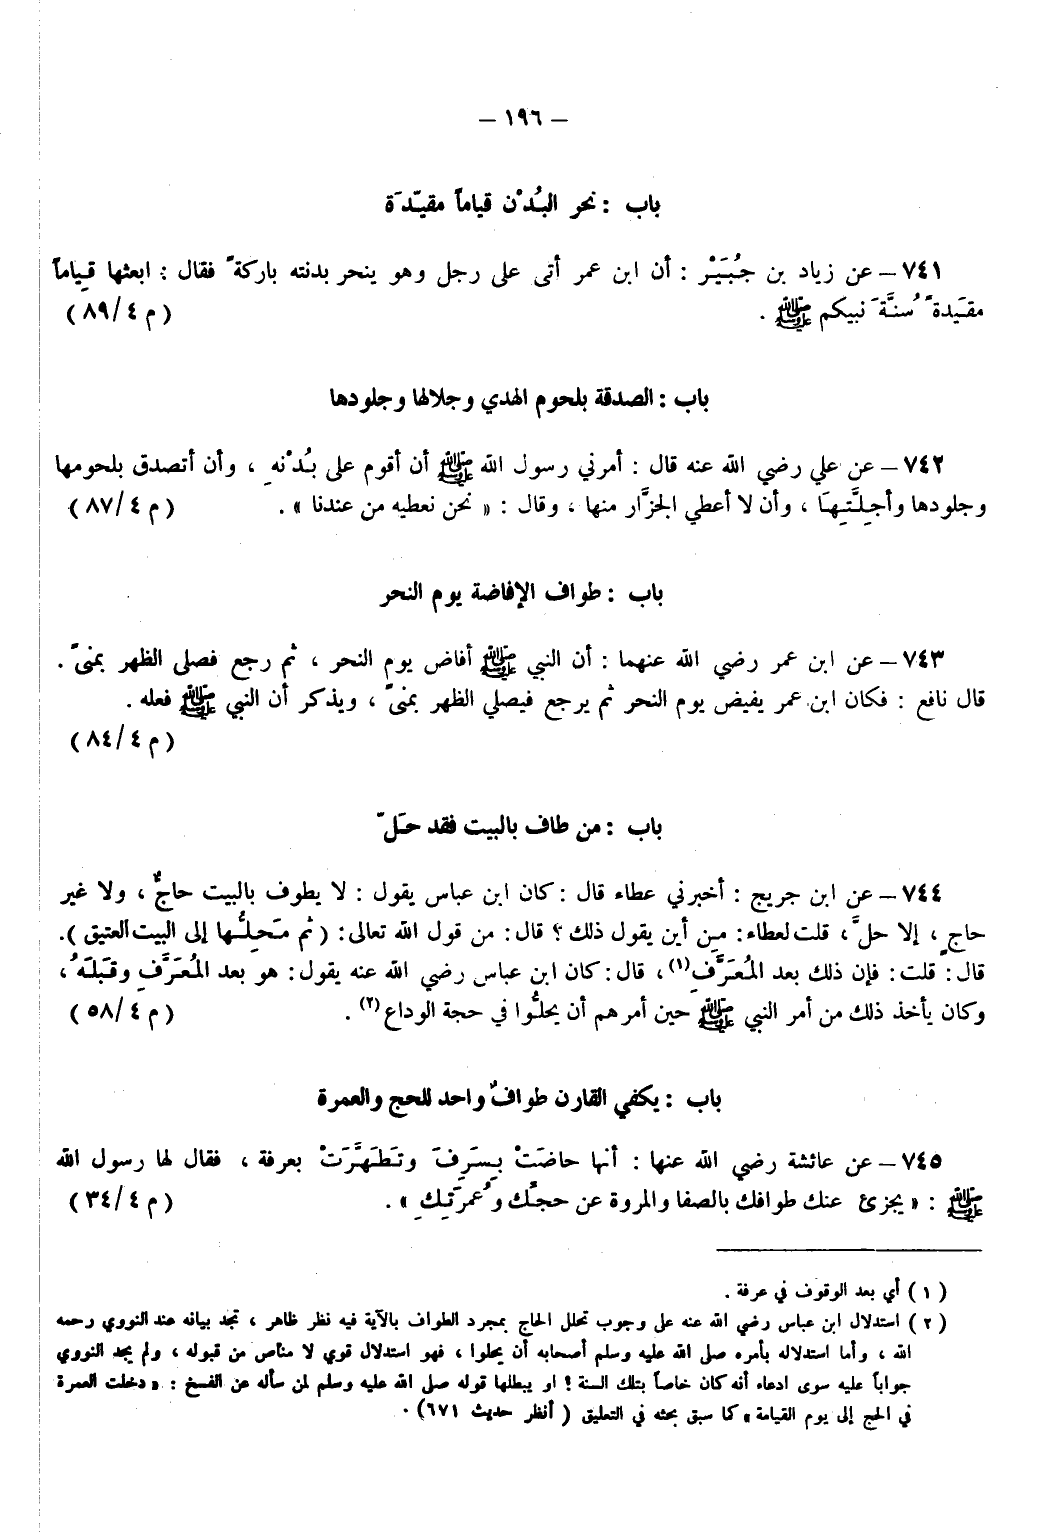 – ١٩٦ –
باب : نحر البُدْن قياماً مقيّدَة
٧٤١ – عن زياد بن جُبَيْر : أن ابن عمر أتى على رجل وهو ينحر بدنته باركةً فقال : ابعثها قِياماً
مقَيدةً سُنَّةَ نبيكم ﷺ . (م ٤/٨٩)
باب : الصدقة بلحوم الهدي وجلالها وجلودها
٧٤٢ – عن علي رضي الله عنه قال : أمرني رسول الله ﷺ أن أقوم على بُدْنهِ ، وأن أتصدق بلحومها
وجلودها وأجِلَّتِهَا ، وأن لا أعطي الجزَّار منها ، وقال : « نحن نعطيه من عندنا » . (م ٤/٨٧)
باب : طواف الإفاضة يوم النحر
٧٤٣ – عن ابن عمر رضي الله عنهما : أن النبي ﷺ أفاض يوم النحر ، ثم رجع فصلى الظهر بمنىً .
قال نافع : فكان ابن عمر يفيض يوم النحر ثم يرجع فيصلي الظهر بمنىً ، ويذكر أن النبي ﷺ فعله .
(م ٤/٨٤)
باب : من طاف بالبيت فقد حَلّ
٧٤٤ – عن ابن جريج : أخبرني عطاء قال : كان ابن عباس يقول : لا يطوف بالبيت حاجٌّ ، ولا غير
حاجٍ ، إلا حلَّ ، قلت لعطاء : مِن أين يقول ذلك ؟ قال : من قول الله تعالى : ( ثم مَحِلُّها إلى البيت العتيق ) .
قال : قلت : فإن ذلك بعد المُعَرَّفِ (١) ، قال : كان ابن عباس رضي الله عنه يقول : هو بعد المُعَرَّفِ وقَبلَهُ ،
وكان يأخذ ذلك من أمر النبي ﷺ حين أمرهم أن يحلُّوا في حجة الوداع (٢) . (م ٤/٥٨)
باب : يكفي القارن طوافٌ واحد للحج والعمرة
٧٤٥ – عن عائشة رضي الله عنها : أنها حاضَتْ بِسَرِفَ وتَطَهَّرَتْ بعرفة ، فقال لها رسول الله
ﷺ : « يجزئ عنك طوافك بالصفا والمروة عن حجِّك وعُمرَتِكِ » . (م ٤/٣٤)
(١) أي بعد الوقوف في عرفة .
(٢) استدلال ابن عباس رضي الله عنه على وجوب تحلل الحاج بمجرد الطواف بالآية فيه نظر ظاهر ، تجد بيانه عند النووي رحمه
الله ، وأما استدلاله بأمره صلى الله عليه وسلم أصحابه أن يحلوا ، فهو استدلال قوي لا مناص من قبوله ، ولم يجد النووي
جواباً عليه سوى ادعاء أنه كان خاصاً بتلك السنة ! او يبطلها قوله صلى الله عليه وسلم لمن سأله عن الفسخ : « دخلت العمرة
في الحج إلى يوم القيامة » كما سبق بحثه في التعليق ( أنظر حديث ٦٧١ ) .